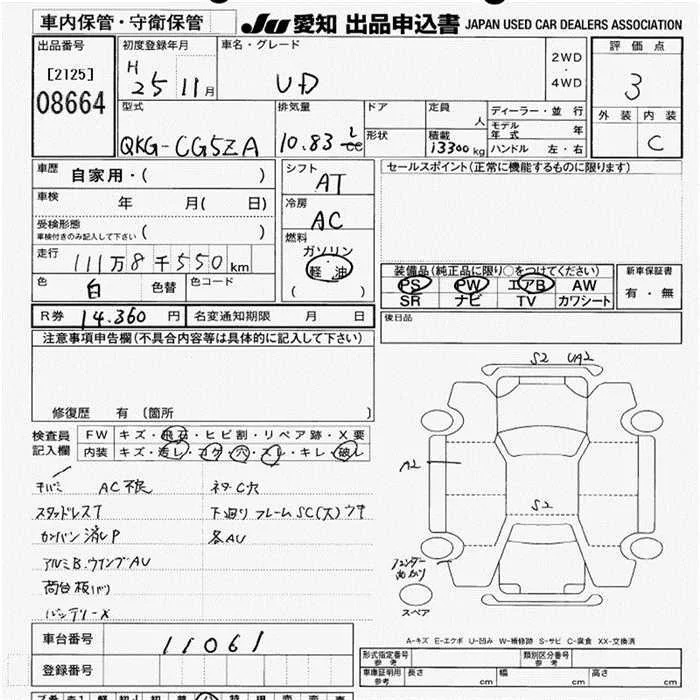 車内保管・守衛保管 JU 愛知 出品申込書 JAPAN USED CAR DEALERS ASSOCIATION
出品番号 初度登録年月 車名・グレード 2WD・4WD 評価点
[2125] H 25 11月 UD 3
08664
型式 排気量 ドア 定員 人 ディーラー・並行 外装 内装
形状 積載 モデル年式 年
QKG-CG5ZA 10.83 L cc 13300kg ハンドル 左・右 C
車歴 自家用・( ) シフト AT セールスポイント(正常に機能するものに限ります)
車検 年 月( 日) 冷房 AC
受検形態 ( )
車検付きのみ記入して下さい
燃料 ガソリン・軽油 ( )
走行 111万8千550km
装備品(純正品に限り○をつけてください) 新車保証書
PS PW エアB AW 有・無
SR ナビ TV カワシート
色 白 色替 色コード
後日品
R券 14.360円 名変通知期限 月 日
注意事項申告欄(不具合内容等は具体的に記入して下さい)
修復歴 有 〔箇所 〕
S2 UA2
検査員記入欄 FW キズ・飛石・ヒビ割・リペア跡・X要
内装 キズ・汚レ・コゲ・穴・スレ・キレ・破レ
A2
S2
AC不良
スタッドレス7 下廻り フレームSC(大)
カンバン消しP 各AU
アルミB.ウイングAU
荷台板
バッテリーX
スペア
A-キズ E-エクボ U-凹み W-補修跡 S-サビ C-腐食 XX-交換済
車台番号 11061
登録番号
形式指定番号 参考 類別区分番号 参考
車庫証明用 参考 長さ cm 幅 cm 高さ cm